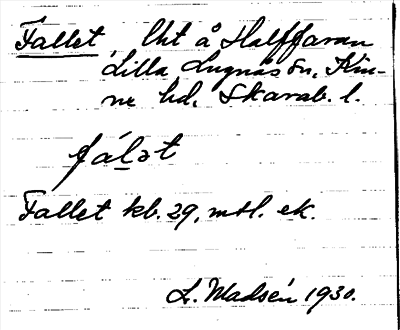 Fallet, lht å Halffaran
Lilla Lugnås sn, Kin-
ne hd, Skarab. l.
fálət
Fallet kb. 29, mtl. ek.
L. Madsén 1930.